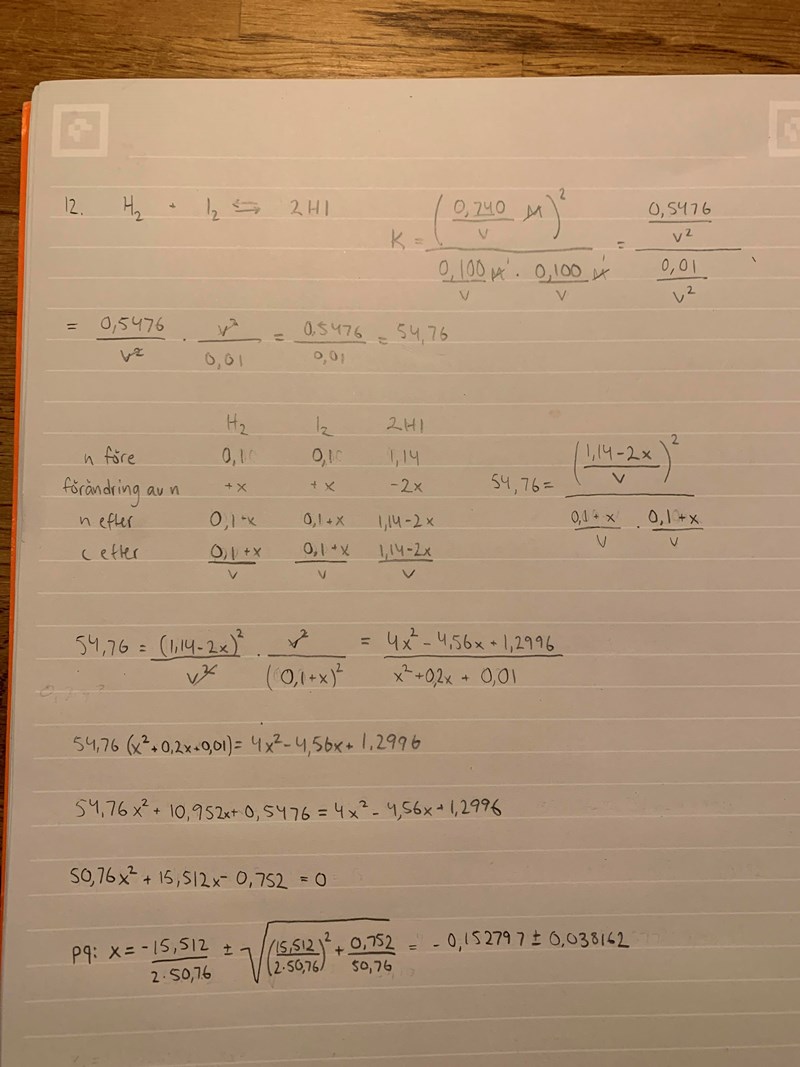 12. H₂ + I₂ ⇆ 2HI
K = (0,740 M / V)² / (0,100 M / V · 0,100 M / V) = (0,5476 / V²) / (0,01 / V²)
= 0,5476 / V² · V² / 0,01 = 0,5476 / 0,01 = 54,76
H₂ I₂ 2HI
n före 0,1 0,1 1,14
förändring av n +x +x -2x
n efter 0,1+x 0,1+x 1,14-2x
c efter (0,1+x) / V (0,1+x) / V (1,14-2x) / V
54,76 = ((1,14-2x) / V)² / ((0,1+x) / V · (0,1+x) / V)
54,76 = (1,14-2x)² / V² · V² / (0,1+x)² = (4x² - 4,56x + 1,2996) / (x² + 0,2x + 0,01)
54,76 (x² + 0,2x + 0,01) = 4x² - 4,56x + 1,2996
54,76x² + 10,952x + 0,5476 = 4x² - 4,56x + 1,2996
50,76x² + 15,512x - 0,752 = 0
pq: x = -15,512 / (2·50,76) ± √((15,512 / (2·50,76))² + 0,752 / 50,76) = -0,152797 ± 0,038162